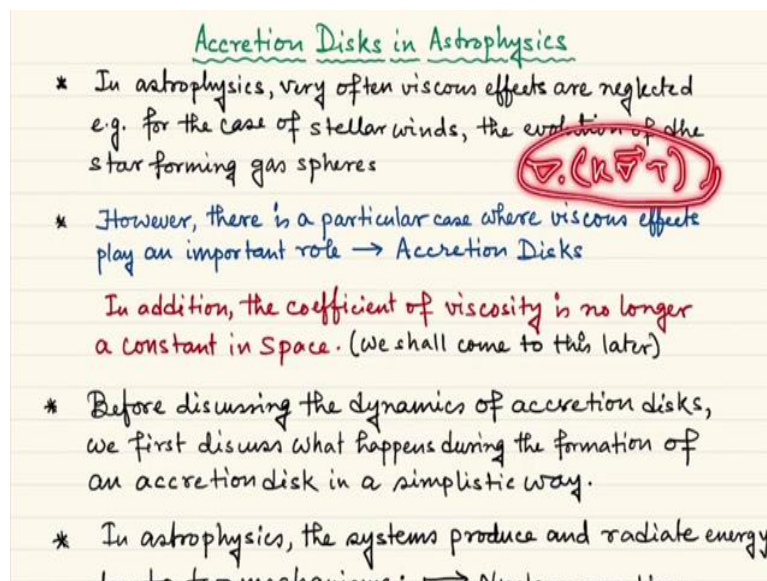 Accretion Disks in Astrophysics
* In astrophysics, very often viscous effects are neglected
e.g. for the case of stellar winds, the evolution of the
star forming gas spheres
∇⃗.(K∇⃗T)
* However, there is a particular case where viscous effects
play an important role → Accretion Disks
In addition, the coefficient of viscosity is no longer
a constant in space. (we shall come to this later)
* Before discussing the dynamics of accretion disks,
we first discuss what happens during the formation of
an accretion disk in a simplistic way.
* In astrophysics, the systems produce and radiate energy